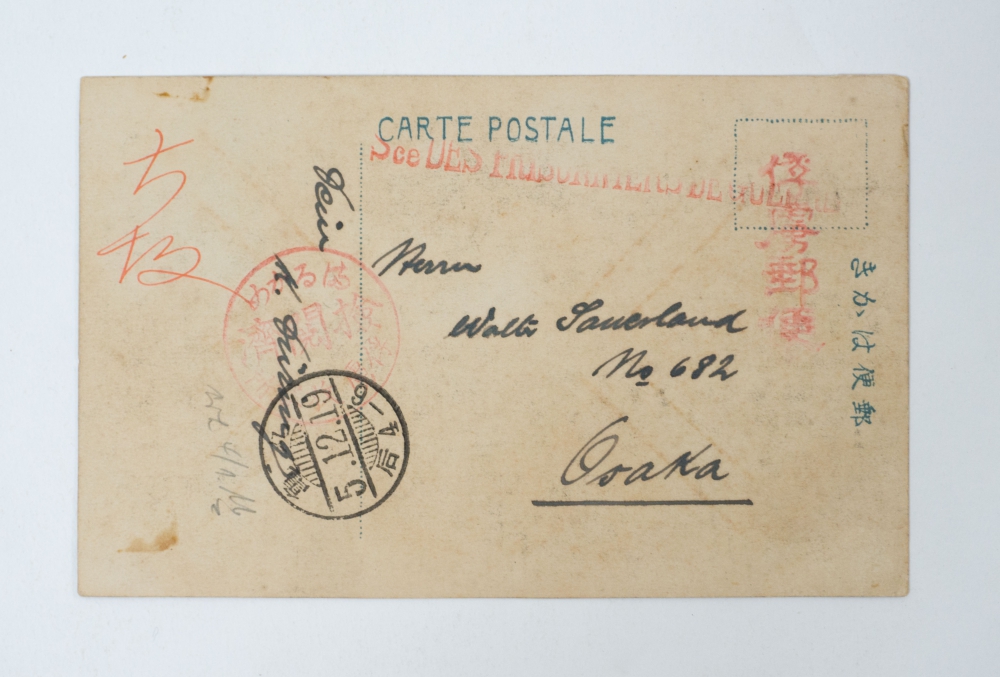 CARTE POSTALE
Sce DES PRISONNIERS DE GUERRE
俘虜郵便
きかは便郵
大阪
Dein
Herrn
Walter Sauerland
No 682
Osaka
5.12.19
后4-6